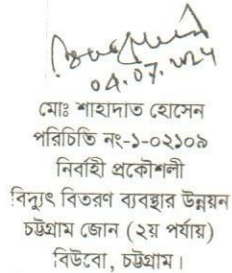 04.07.2024
মোঃ শাহাদাত হোসেন
পরিচিতি নং-১-০২১০৯
নির্বাহী প্রকৌশলী
বিদ্যুৎ বিতরণ ব্যবস্থার উন্নয়ন
চট্টগ্রাম জোন (২য় পর্যায়)
বিউবো, চট্টগ্রাম।